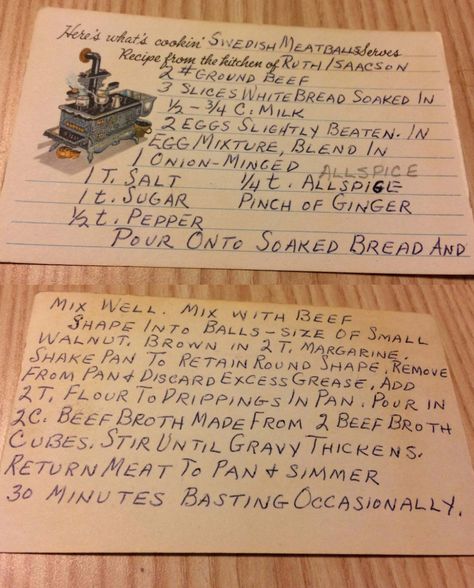 Here's what's cookin' SWEDISH MEATBALLS Serves
Recipe from the kitchen of RUTH ISAACSON
2 # GROUND BEEF
3 SLICES WHITE BREAD SOAKED IN
½ - ¾ C. MILK
2 EGGS SLIGHTLY BEATEN. IN
EGG MIXTURE, BLEND IN
1 ONION-MINCED ALLSPICE
1 T. SALT ¼ t. ALLSPICE
1 t. SUGAR PINCH OF GINGER
½ t. PEPPER
POUR ONTO SOAKED BREAD AND
MIX WELL. MIX WITH BEEF
SHAPE INTO BALLS - SIZE OF SMALL
WALNUT. BROWN IN 2 T. MARGARINE.
SHAKE PAN TO RETAIN ROUND SHAPE. REMOVE
FROM PAN & DISCARD EXCESS GREASE. ADD
2 T. FLOUR TO DRIPPINGS IN PAN. POUR IN
2 C. BEEF BROTH MADE FROM 2 BEEF BROTH
CUBES. STIR UNTIL GRAVY THICKENS.
RETURN MEAT TO PAN & SIMMER
30 MINUTES BASTING OCCASIONALLY.